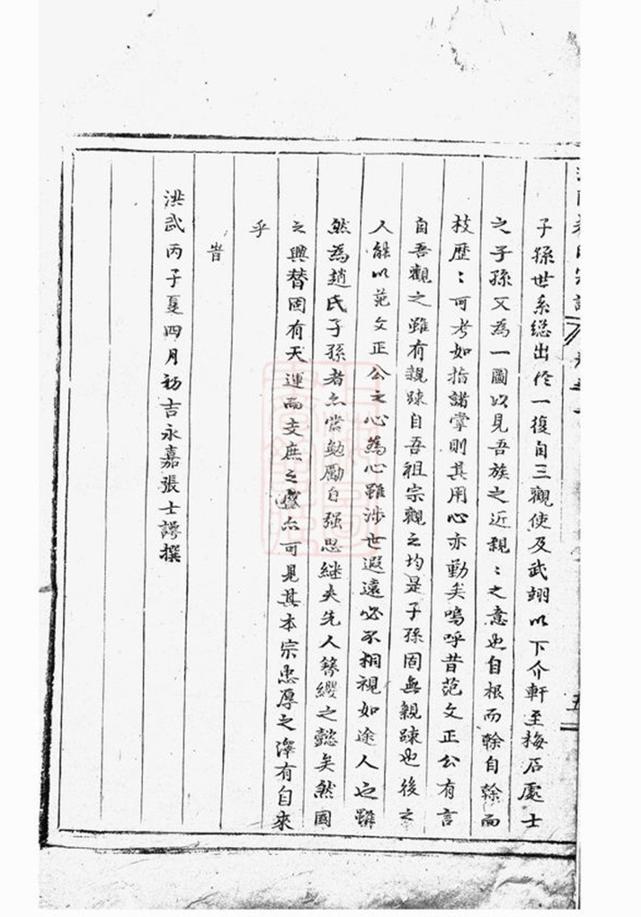 子孫世系総出佗一復自三觀使及武翊以下介軒至梅石處士
之子孫又為一圖以見吾族之近親〻之意也自根而榦自榦而
枝歷〻可考如指諸掌則其用心亦勤矣嗚呼昔范文正公有言
自吾觀之雖有親踈自吾祖宗觀之均是子孫固無親踈也後之
人能以范文正公之心為心雖涉世遐遠必不相視如途人也雖
然為趙氏子孫者尒當勉勵自强思継夫先人簪纓之懿矣然國
之興替固有天運而支庶之盛尒可見其本宗忠厚之澤有自來
乎
旹
洪武丙子夏四月初吉永嘉張士諤撰